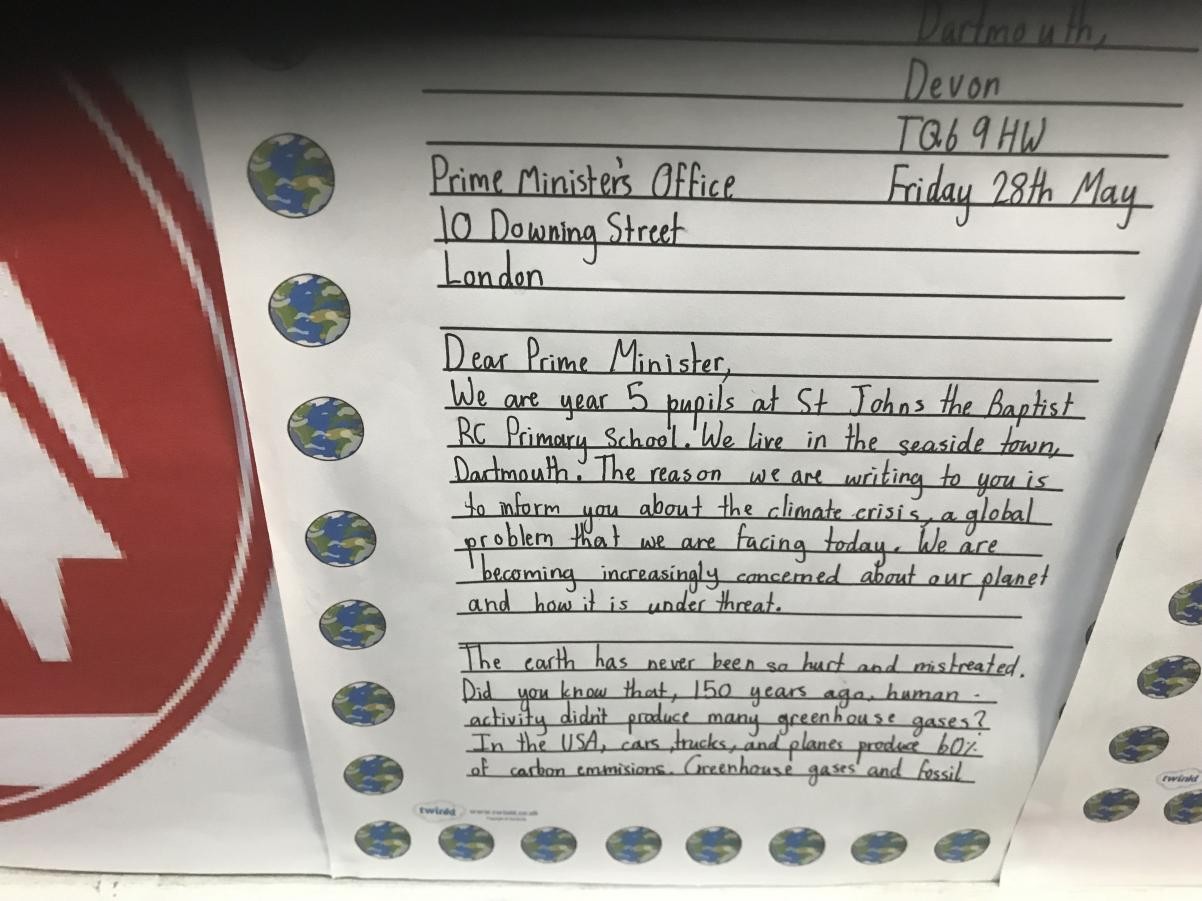 Dartmouth,
Devon
TQ6 9HW
Prime Minister's Office Friday 28th May
10 Downing Street
London
Dear Prime Minister,
We are year 5 pupils at St Johns the Baptist
RC Primary School. We live in the seaside town,
Dartmouth. The reason we are writing to you is
to inform you about the climate crisis, a global
problem that we are facing today. We are
becoming increasingly concerned about our planet
and how it is under threat.
The earth has never been so hurt and mistreated.
Did you know that, 150 years ago, human -
activity didn't produce many greenhouse gases?
In the USA, cars, trucks, and planes produce 60%
of carbon emmisions. Greenhouse gases and fossil
twinkl www.twinkl.co.uk
twinkl